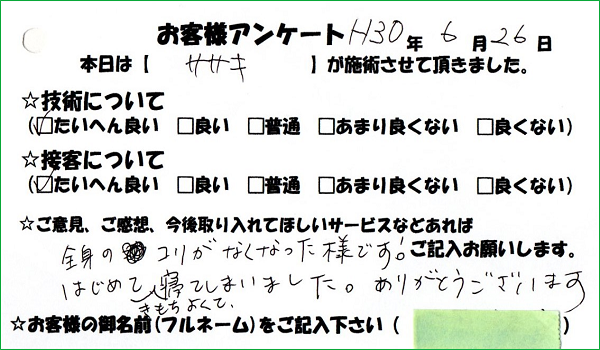 お客様アンケート H30年 6月26日
本日は【 ササキ 】が施術させて頂きました。
☆技術について
(☑たいへん良い □良い □普通 □あまり良くない □良くない)
☆接客について
(☑たいへん良い □良い □普通 □あまり良くない □良くない)
☆ご意見、ご感想、今後取り入れてほしいサービスなどあれば
ご記入お願いします。
全身の コリがなくなった様です!
はじめて、きもちよくて、寝てしまいました。ありがとうございます
☆お客様の御名前(フルネーム)をご記入下さい (